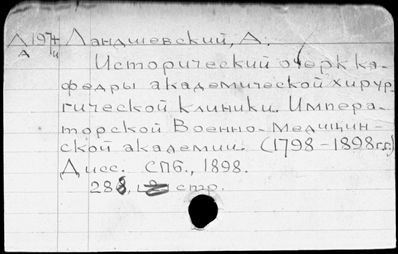 Д197 Ландшевский, А.
А/и
Исторический очерк ка-
федры академической хирур-
гической клиники. Импера-
торской Военно-медицин-
ской академии. (1798-1898гг.)
Дисс. СПб., 1898.
288, стр.